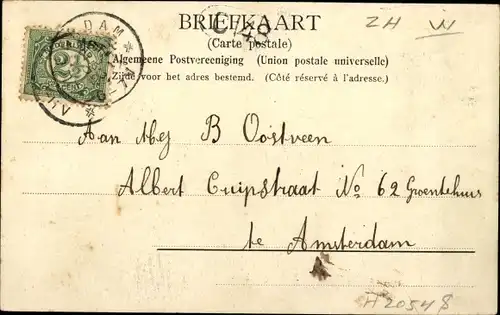 BRIEFKAART
(Carte postale)
Algemeene Postvereeniging (Union postale universelle)
Zijde voor het adres bestemd. (Côté réservé à l'adresse.)
ZH W
DAM
2½
Aan Mej B Oostveen
Albert Cuipstraat No 62 Groentehuis
te Amsterdam
H20548